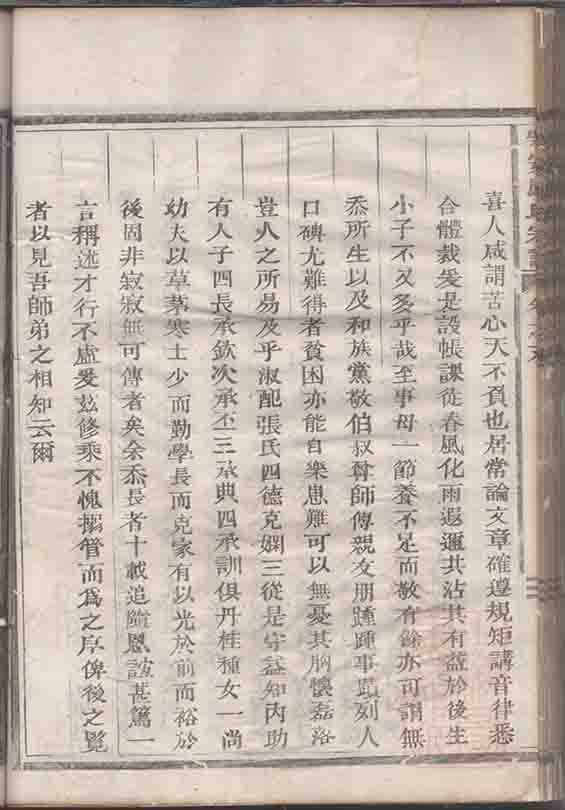 喜人咸謂苦心天不負也居常論文章確遵規矩講音律悉
合體裁爰是設帳課徒春風化雨遐邇共沾其有益於後生
小子不又多乎哉至事母一節養不足而敬有餘亦可謂無
忝所生以及和族黨敬伯叔尊師傅親友朋踵踵事蹟刻人
口碑尤難得者貧困亦能自樂患難可以無憂其胸懷磊落
豈人之所易及乎淑配張氏四德克嫻三從是守益知內助
有人子四長承欽次承丕三承典四承訓俱丹桂種女一尚
幼夫以草茅寒士少而勤學長而克家有以光於前而裕於
後固非寂寂無可傳者矣余忝長者十載追隨恩誼甚篤一
言稱述才行不虛爰茲修乘不愧搦管而為之序俾後之覽
者以見吾師弟之相知云爾
氏宗譜